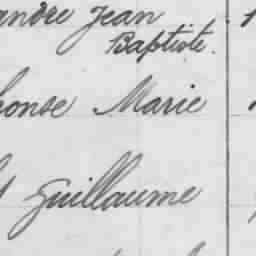 andre Jean
Baptiste.
honse Marie
Guillaume